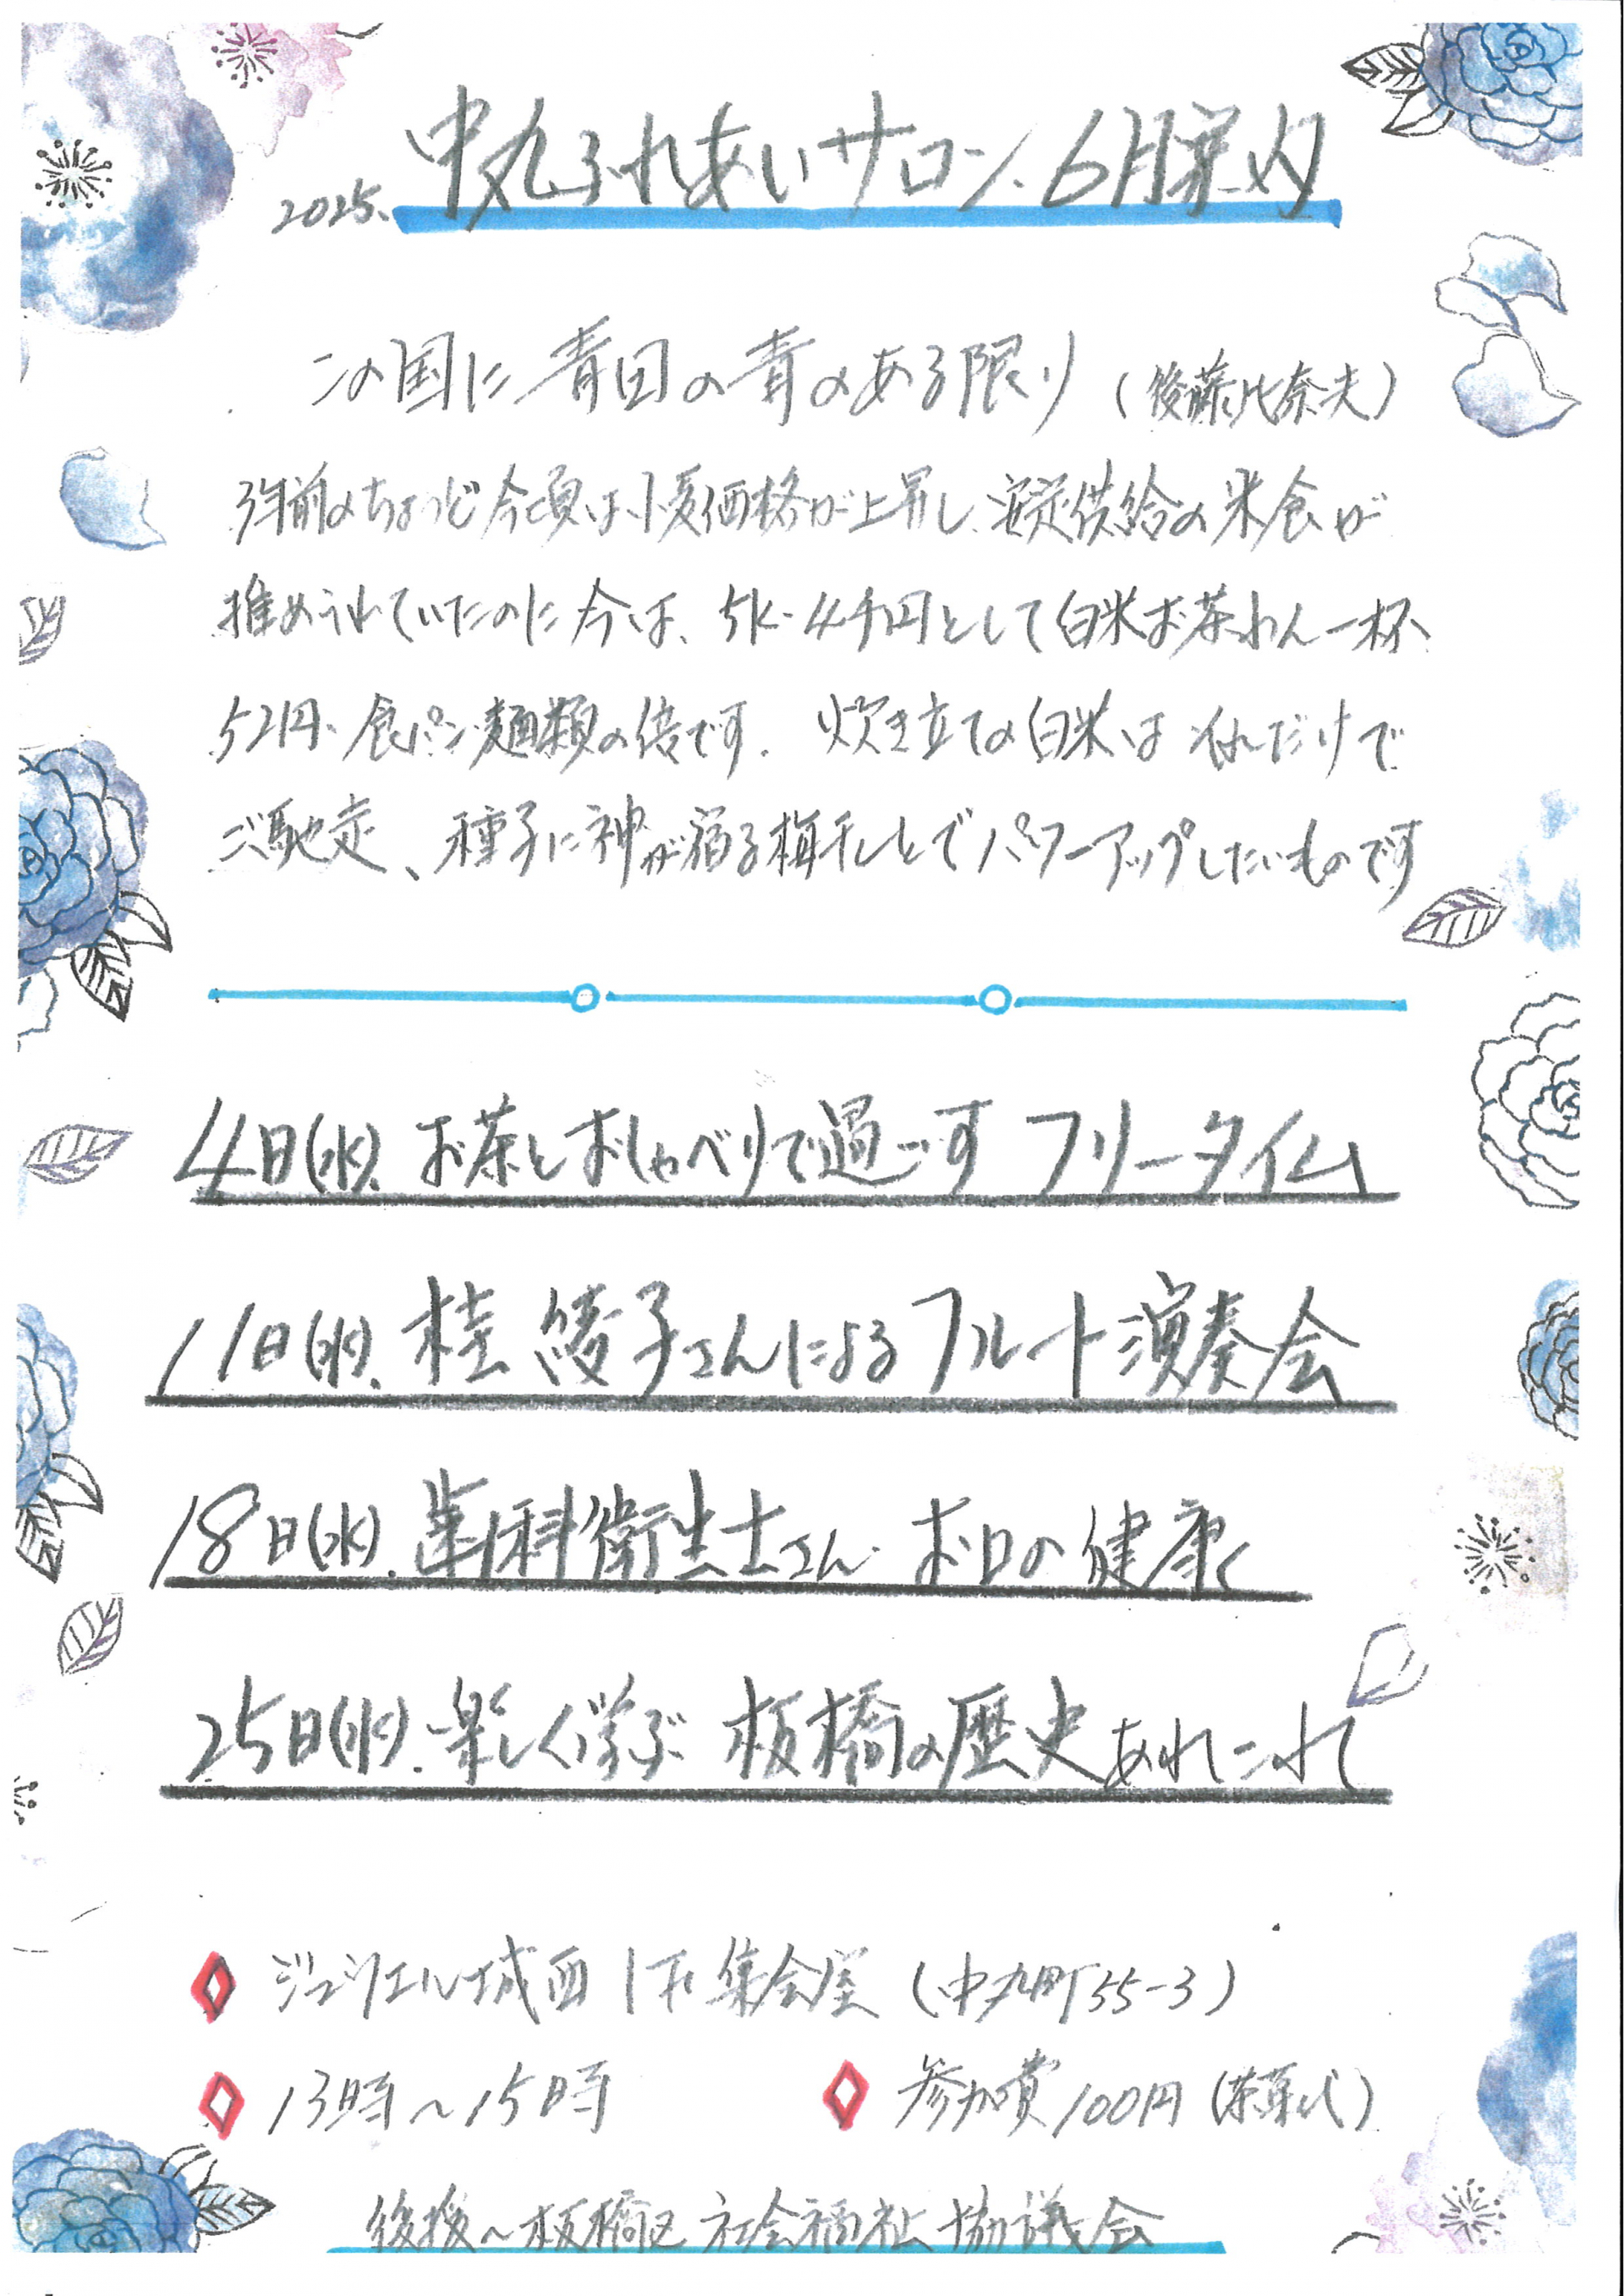 2025. 中丸ふれあいサロン. 6月案内
この国に青田の青のある限り (後藤比奈夫)
3年前のちょうど今頃は小麦価格が上昇し、安定供給の米食が
推められていたのに今は、5k・4千円として白米お茶わん一杯、
52円、食パン、麺類の倍です. 炊き立ての白米はそれだけで
ご馳走、種子に神が宿る梅干しとでパワーアップしたいものです
4日(水). お茶とおしゃべりで過ごす フリータイム
11日(水). 桂 綾子さんによるフルート演奏会
18日(水). 歯科衛生士さん お口の健康
25日(水). 楽しく学ぶ 板橋の歴史あれこれ
ジュシエル城西 1F 集会室 (中丸町55-3)
13時〜15時 参加費100円 (茶菓代)
後援〜板橋区 社会福祉協議会